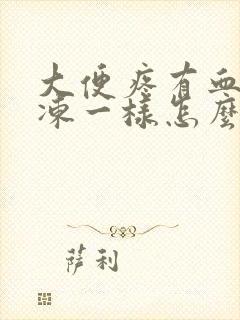 大便疼有血
凍一樣怎麼
萨利